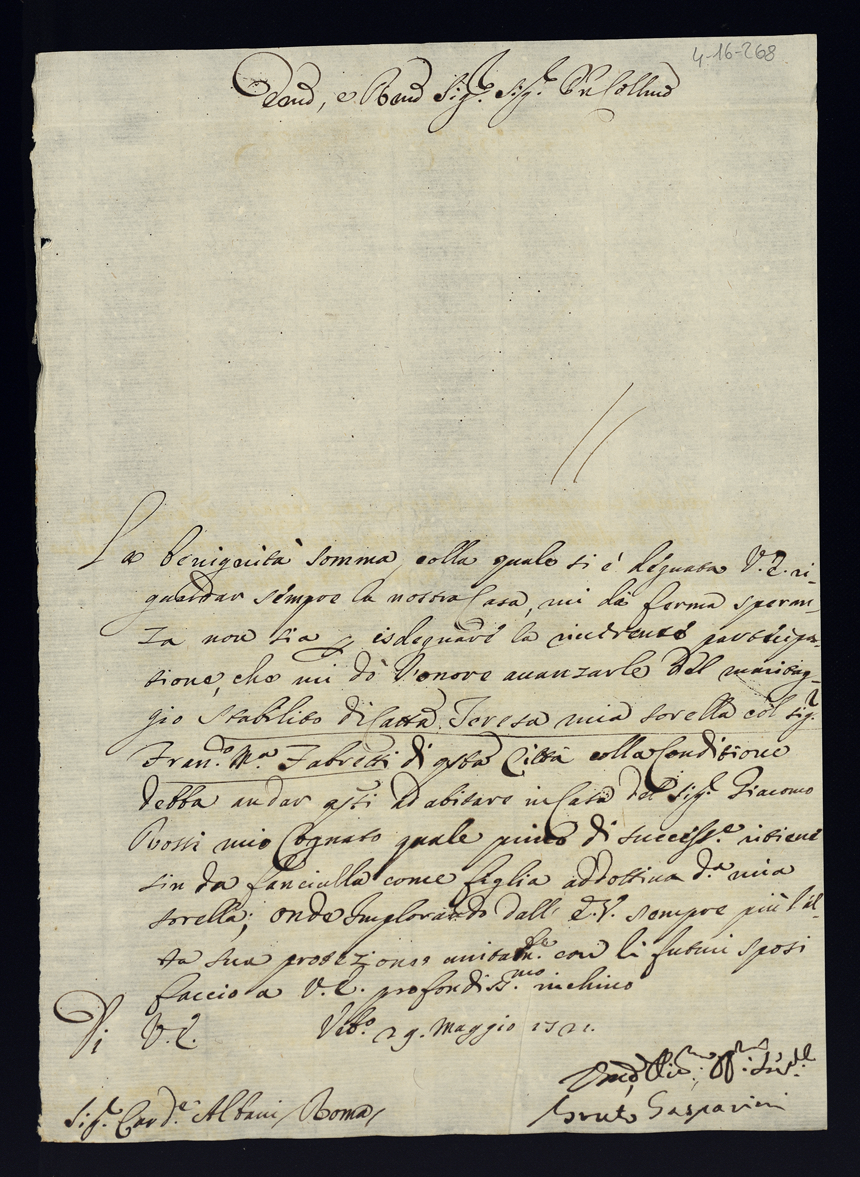 4-16-268
Emo, e Rmo Sig.r Sig.r Pn Collmo
La benignità somma, colla quale si è degnata V.E. ri-
guardar sempre la nostra Casa, mi dà ferma speran-
za non sia p isdegnare la riverente participa-
tione, che mi dò l'onore avanzarle del maritag-
gio stabilito di Catta Teresa mia sorella col sig.r
Fran.o M.a Fabretti di qsta Città colla Conditione
debba andar qsti ad abitare in Casa del Sig.r Giacomo
Rossi mio Cognato quale privo di success.e ritiene
sin da fanciulla come figlia addottiva d.a mia
sorella; onde Implorando dall' E.V. sempre più l'al-
ta sua protezione unitam.te con li futuri sposi
faccio a V.E. profondiss.mo inchino
Di V.E. Urb.o 29. Maggio 1721.
Sig.r Card.e Albani Roma
Gasparini